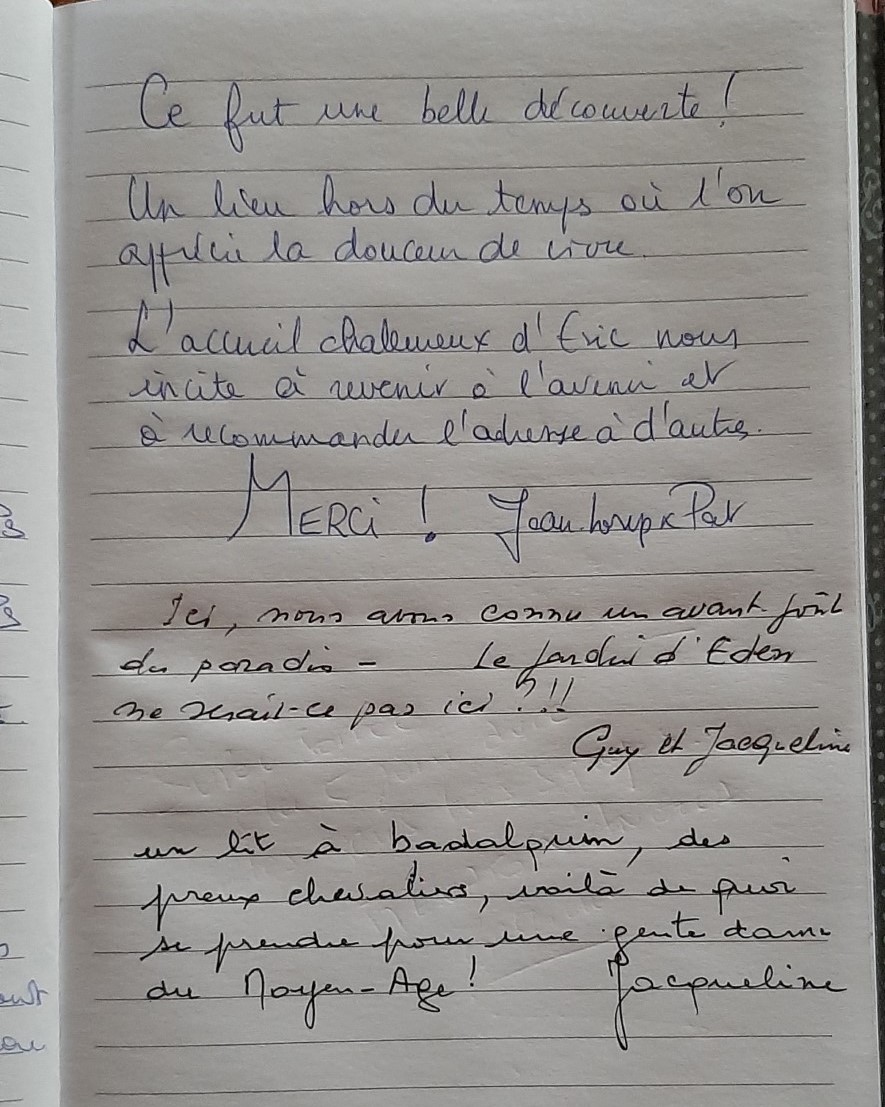 Ce fut une belle découverte !
Un lieu hors du temps où l'on
apprécie la douceur de vivre.
L'accueil chaleureux d'Eric nous
incite à revenir à l'avenir et
à recommander l'adresse à d'autres.
MERCi ! Jean-Loup & Pat
Ici, nous avons connu un avant-goût
du paradis - Le Jardin d'Eden
ne serait-ce pas ici ?!!
Guy et Jacqueline
un lit à badalquin, des
preux chevaliers, voilà de quoi
se prendre pour une gente dame
du Moyen-Age ! Jacqueline